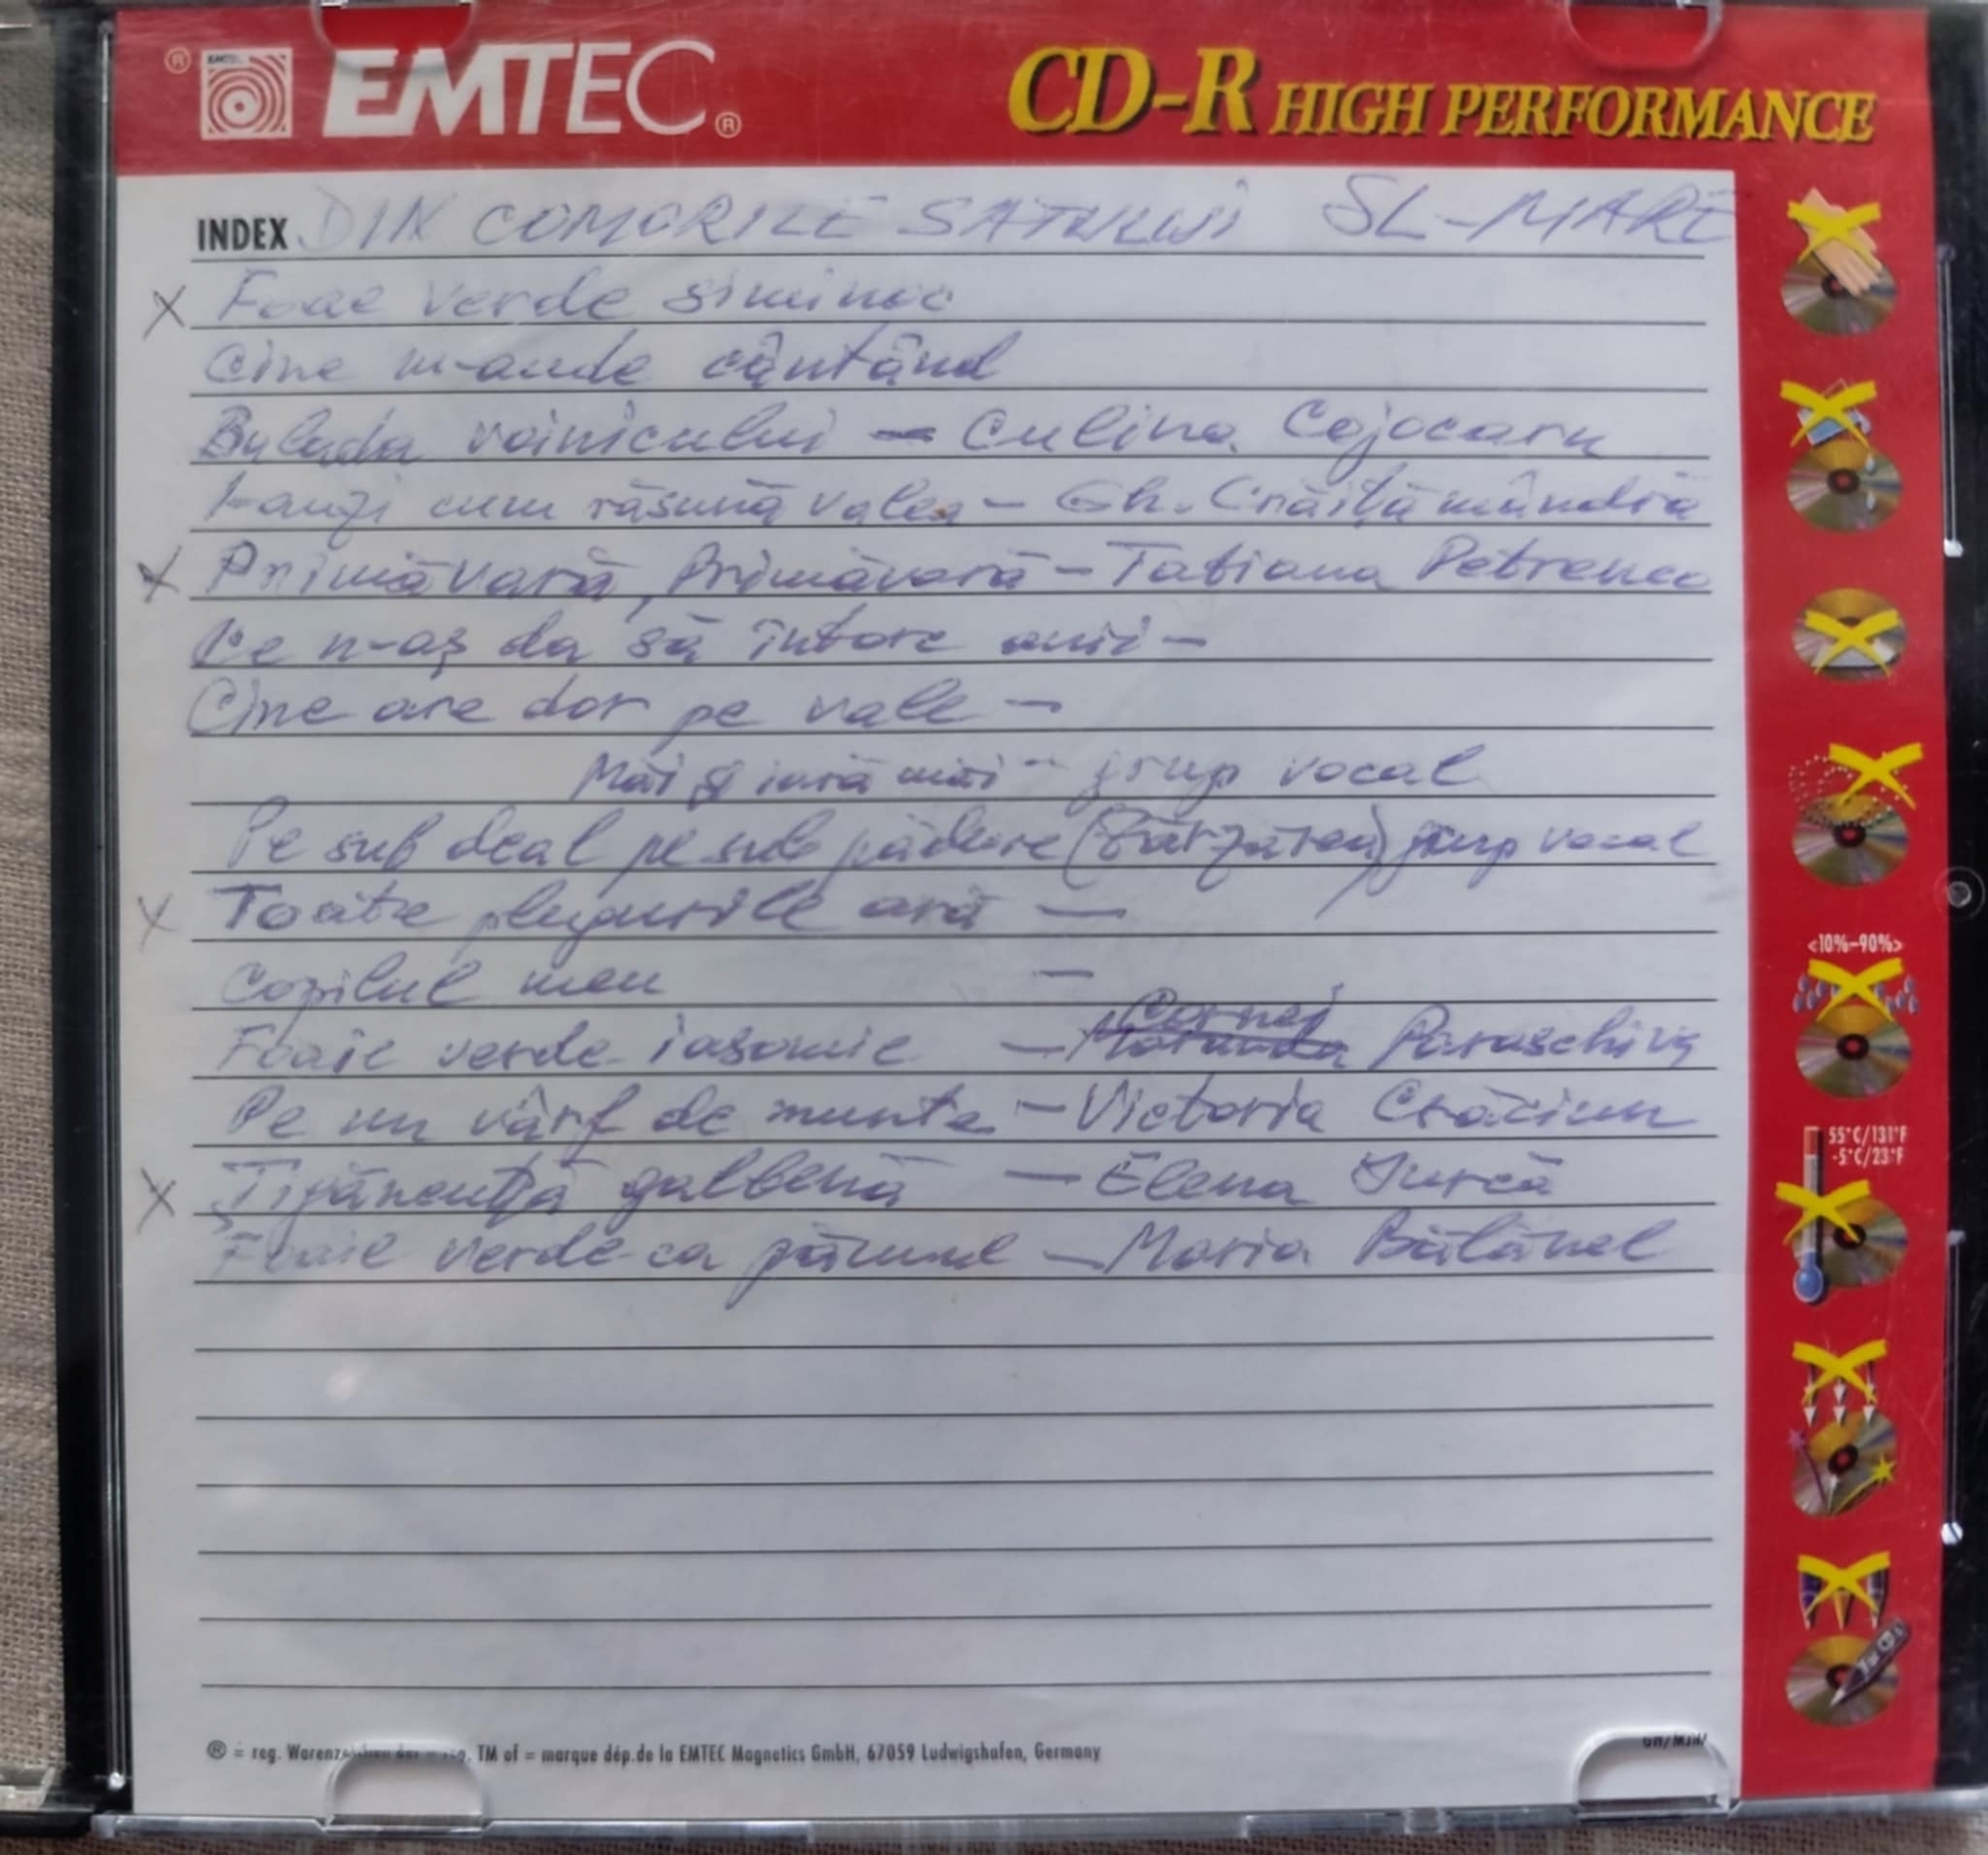 EMTEC ® EMTEC ®
CD-R HIGH PERFORMANCE
INDEX DIN COMORILE SATULUI SL-MARE
X Foae verde siminoc
Cine m-aude cântând
Balada voinicului - Culina Cojocaru
I-auzi cum răsună valea - Gh. Crăiță mândră
X Primăvară, Primăvară - Tatiana Petrenco
Ce n-aș da să întorc anii -
Cine are dor pe vale -
Măi și iară măi - grup vocal
Pe sub deal pe sub pădure (Bârzărea) grup vocal
X Toate plugurile ară -
Copilul meu -
Cornej
Foaie verde iasomie - Paraschiva
Pe un vârf de munte - Victoria Crăciun
X galbenă - Elena Jurcă
Foaie verde ca părunl - Maria Bălănel
<10%-90%>
55°C/131°F
-5°C/23°F
® = reg. TM of = marque dép.de la EMTEC Magnetics GmbH, 67059 Ludwigshafen, Germany